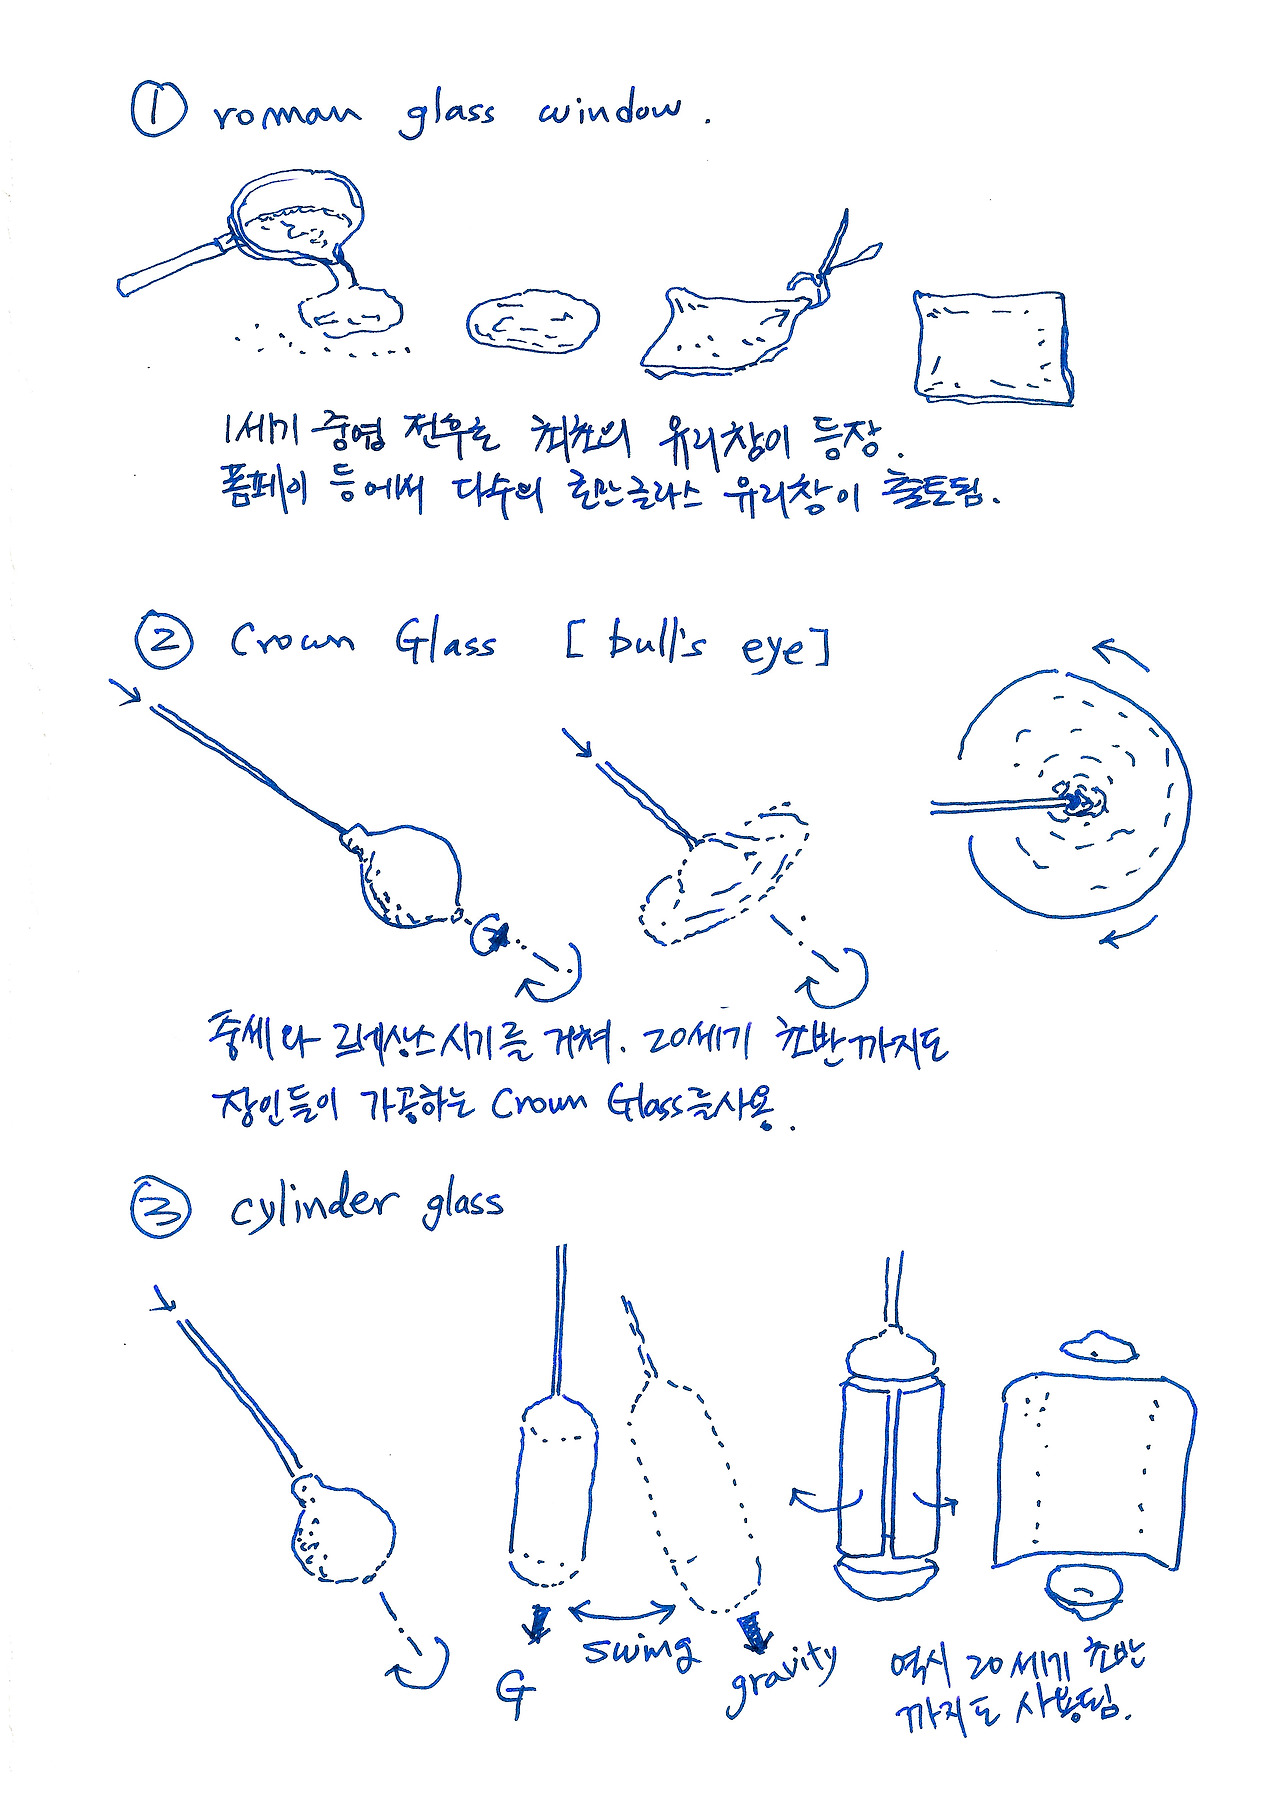 ① roman glass window.
1세기 중엽 전후로 최초의 유리창이 등장.
폼페이 등에서 다수의 로만글라스 유리창이 출토됨.
② Crown Glass [bull's eye]
중세와 르네상스시기를 거쳐. 20세기 초반까지도
장인들이 가공하는 Crown Glass를 사용.
③ cylinder glass
swing
G
gravity
역시 20세기 초반
까지도 사용됨.